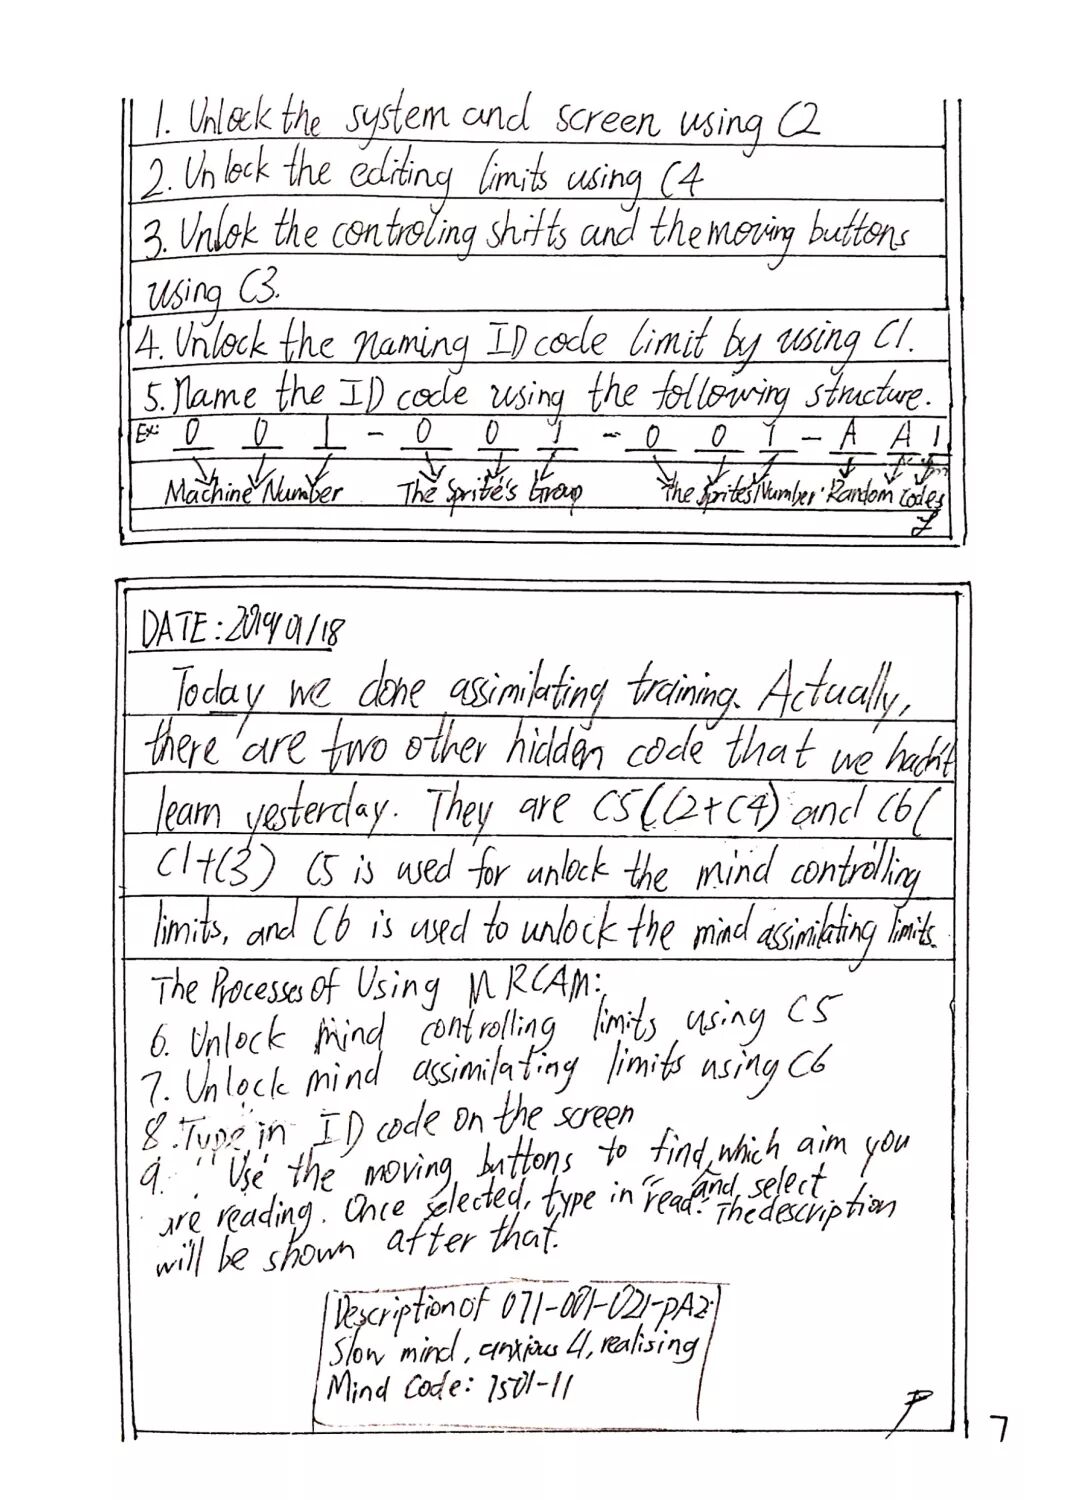 1. Unlock the system and screen using C2
2. Unlock the editing limits using C4
3. Unlok the controling shifts and the moving buttons
using C3.
4. Unlock the naming ID code limit by using C1.
5. Name the ID code using the following structure.
Ex: 0 0 1 - 0 0 1 - 0 0 1 - A A 1
Machine Number The Sprite's Group The Sprites Number Random Codes
DATE: 2019/01/18
Today we done assimilating training. Actually,
there are two other hidden code that we hadn't
learn yesterday. They are C5(C2+C4) and C6(
C1+C3) C5 is used for unlock the mind controlling
limits, and C6 is used to unlock the mind assimilating limits.
The Processes Of Using MRCAM:
6. Unlock mind controlling limits using C5
7. Unlock mind assimilating limits using C6
8. Type in ID code on the screen
9. Use the moving buttons to find which aim you
are reading. and select Once selected, type in "read". The description
will be shown after that.
Description of 071-001-021-PA2:
Slow mind, anxious 4, realising
Mind Code: 1501-11
7